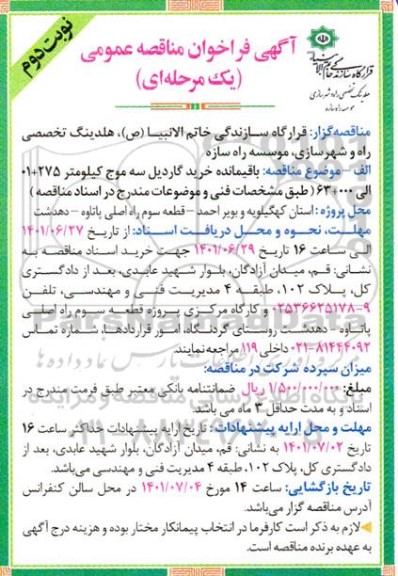 نوبت دوم
آگهی فراخوان مناقصه عمومی
(یک مرحله‌ای)
قرارگاه سازندگی خاتم الانبیاء
موسسه راه سازه
مناقصه‌گزار: قرارگاه سازندگی خاتم الانبیا (ص)، هلدینگ تخصصی
راه و شهرسازی، موسسه راه سازه
الف - موضوع مناقصه: باقیمانده خرید گاردیل سه موج کیلومتر ۲۷۵+۰۱
الی ۰۰۰+۶۳ (طبق مشخصات فنی و موضوعات مندرج در اسناد مناقصه)
محل پروژه: استان کهگیلویه و بویر احمد - قطعه سوم راه اصلی پاتاوه - دهدشت
مهلت، نحوه و محل دریافت اسناد: از تاریخ ۱۴۰۱/۰۶/۲۷
الی ساعت ۱۶ تاریخ ۱۴۰۱/۰۶/۲۹ جهت خرید اسناد مناقصه به
نشانی: قم، میدان آزادگان، بلوار شهید عابدی، بعد از دادگستری
کل، پلاک ۱۰۲، طبقه ۴ مدیریت فنی و مهندسی، تلفن
۹-۰۲۵۳۶۶۲۵۱۷۸ و کارگاه مرکزی پروژه قطعه سوم راه اصلی
پاتاوه - دهدشت روستای گردنگاه، امور قراردادها، شماره تماس
۸۱۴۴۰۹۲-۰۲۱ داخلی ۱۱۹ مراجعه نمایند.
میزان سپرده شرکت در مناقصه:
مبلغ: ۱/۵۰۰/۰۰۰/۰۰۰ ریال ضمانتنامه بانکی معتبر طبق فرمت مندرج در
اسناد و به مدت حداقل ۳ ماه می باشد.
مهلت و محل ارایه پیشنهادات: تاریخ ارایه پیشنهادات حداکثر ساعت ۱۶
تاریخ ۱۴۰۱/۰۷/۰۲ به نشانی: قم، میدان آزادگان، بلوار شهید عابدی، بعد از
دادگستری کل، پلاک ۱۰۲، طبقه ۴ مدیریت فنی و مهندسی می‌باشد.
تاریخ بازگشایی: ساعت ۱۴ مورخ ۱۴۰۱/۰۷/۰۴ در محل سالن کنفرانس
آدرس مناقصه گزار می‌باشد.
لازم به ذکر است کارفرما در انتخاب پیمانکار مختار بوده و هزینه درج آگهی
به عهده برنده مناقصه است.